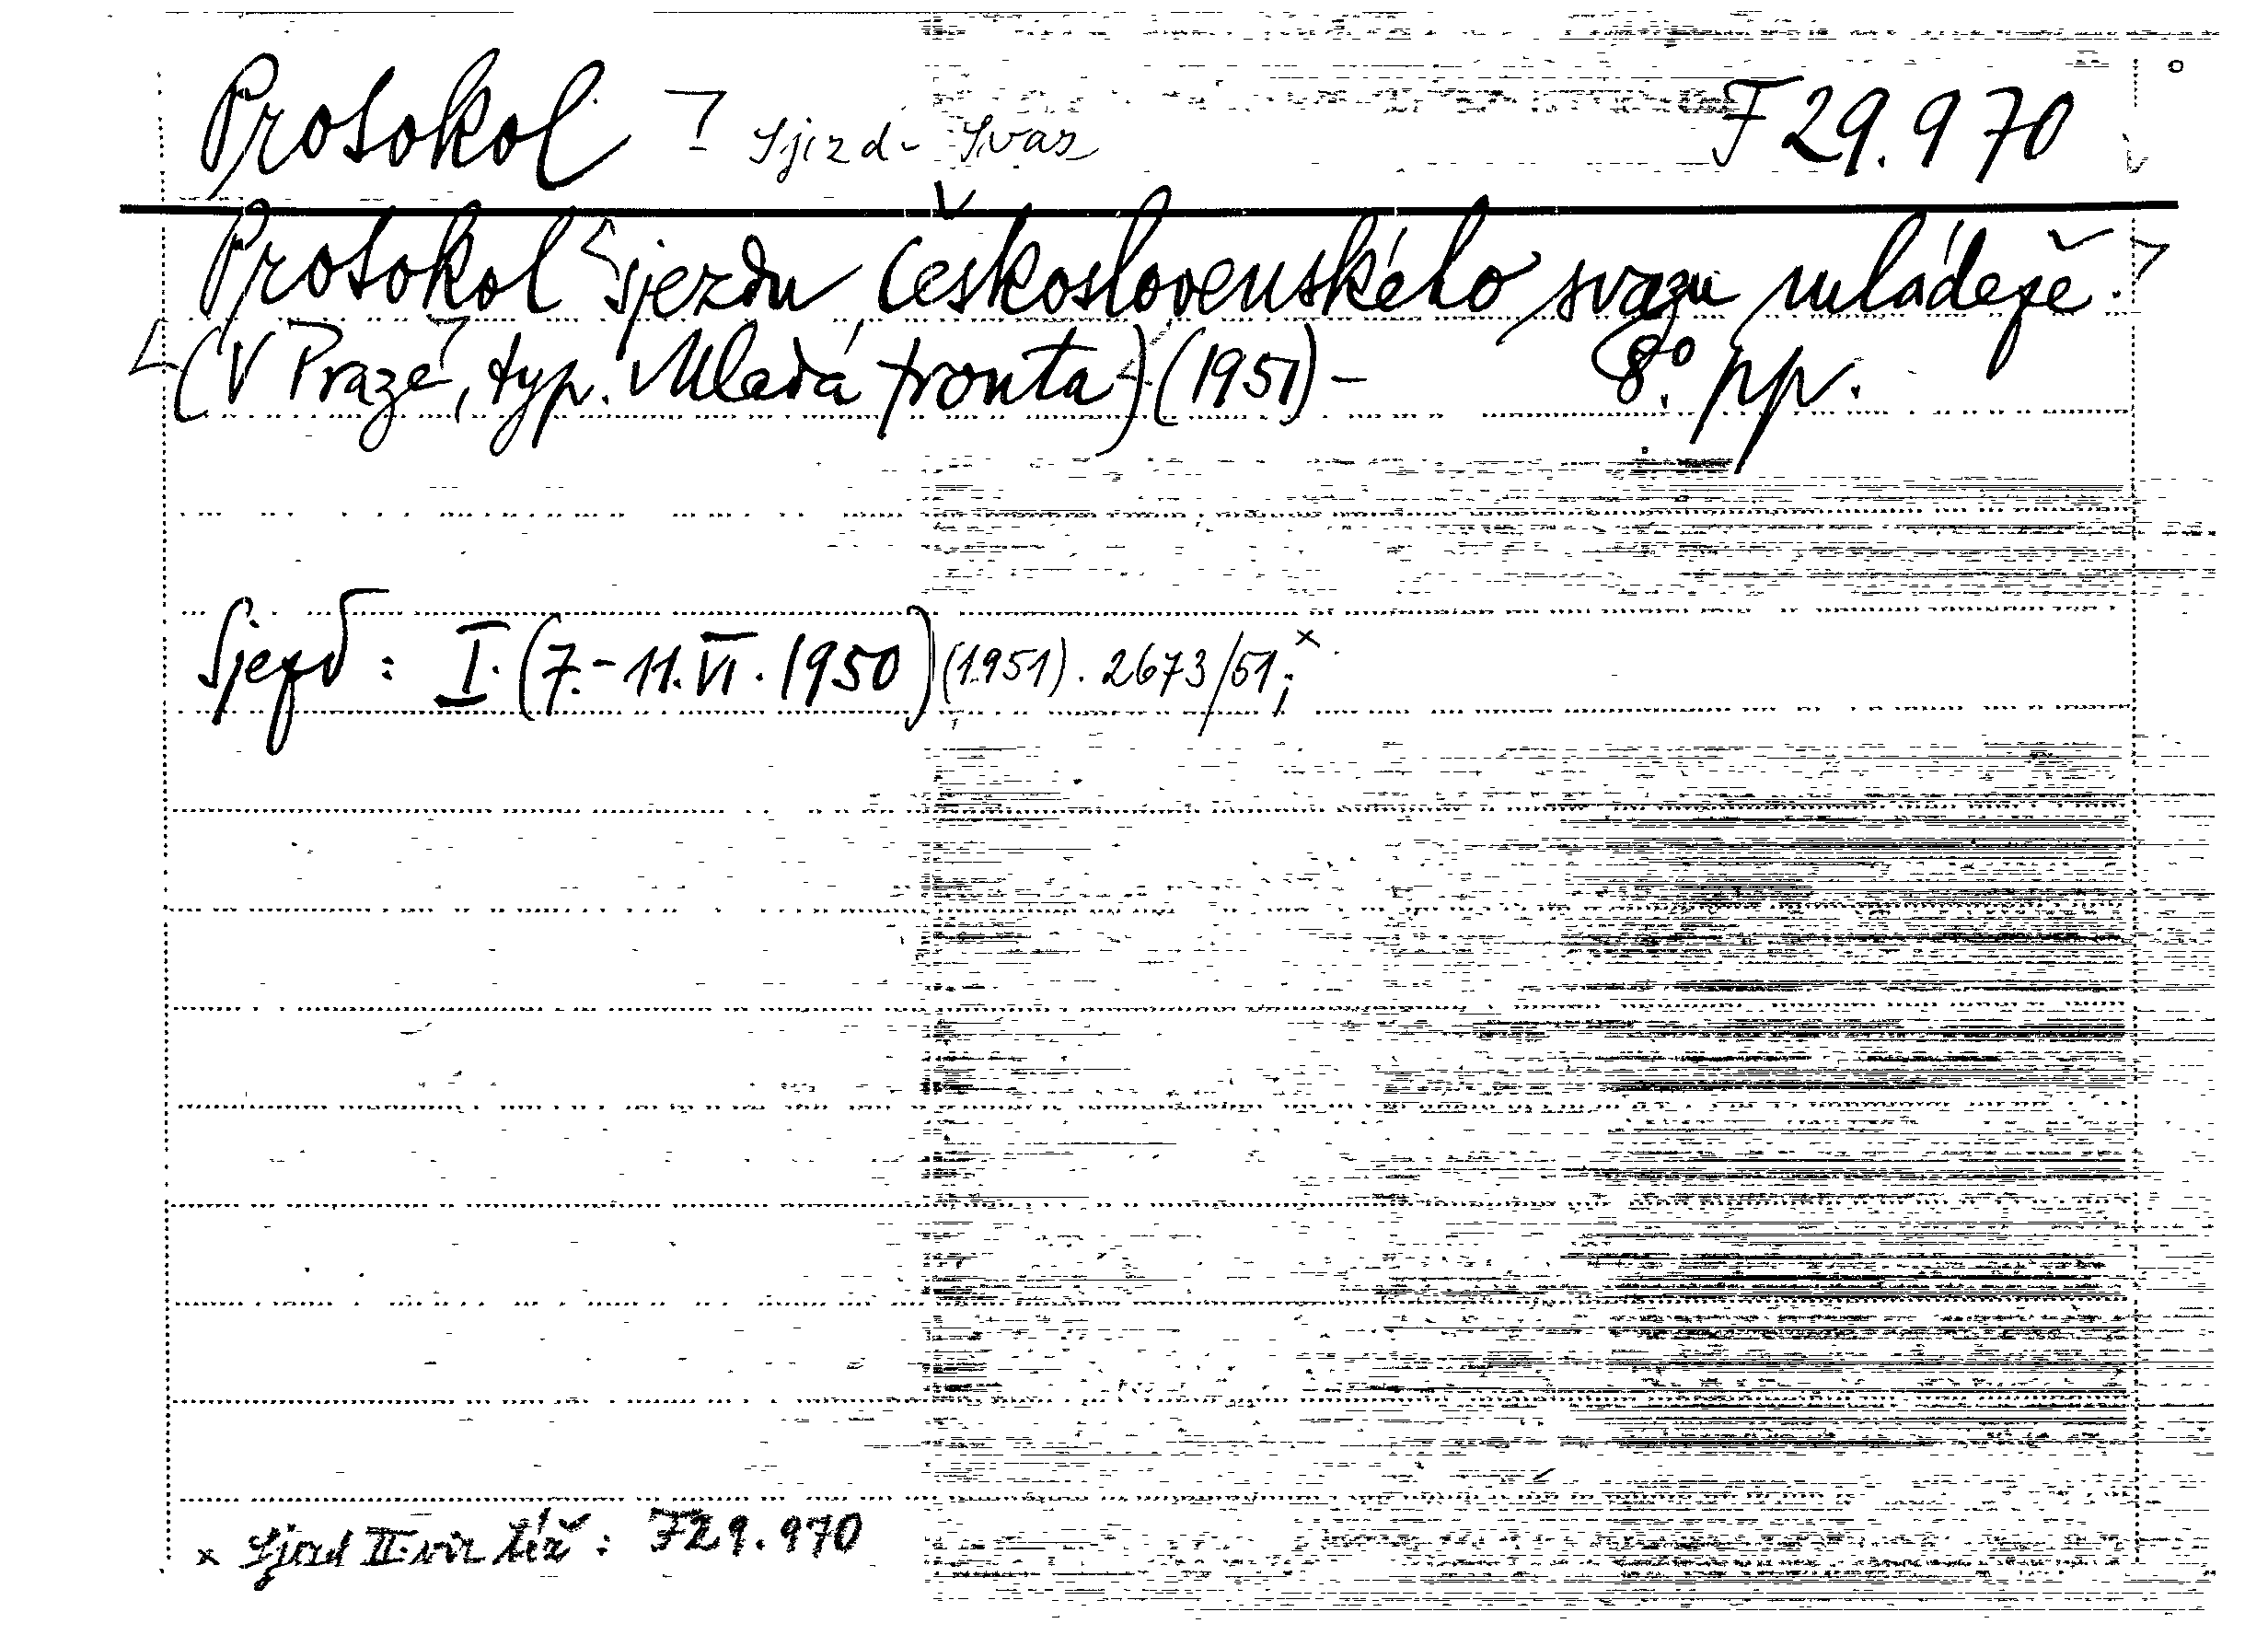 Protokol Sjezd - Svaz F 29.970
Protokol sjezdu Československého svazu mládeže.
(V Praze, typ. Mladá fronta) (1951) - 8°. pp.
Sjezd : I. (7.-11.VI.1950) (1951). 2673/51; x
x Sjezd II. viz též : F29.970